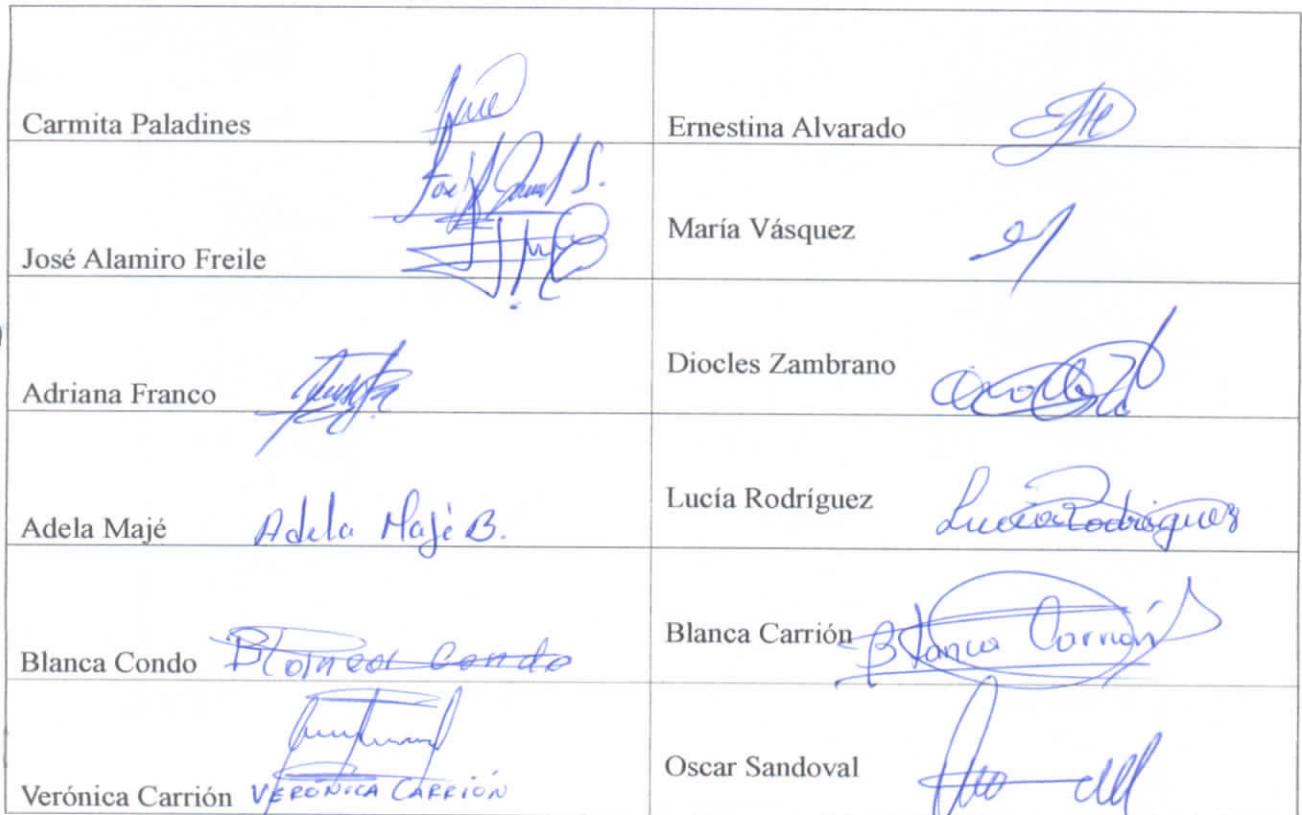 Carmita Paladines
Ernestina Alvarado
José S.
José Alamiro Freile
María Vásquez
Adriana Franco
Diocles Zambrano
Adela Majé Adela Majé B.
Lucía Rodríguez Lucía Rodríguez
Blanca Condo Blanca Condo
Blanca Carrión Blanca Carrión
Verónica Carrión VERÓNICA CARRIÓN
Oscar Sandoval